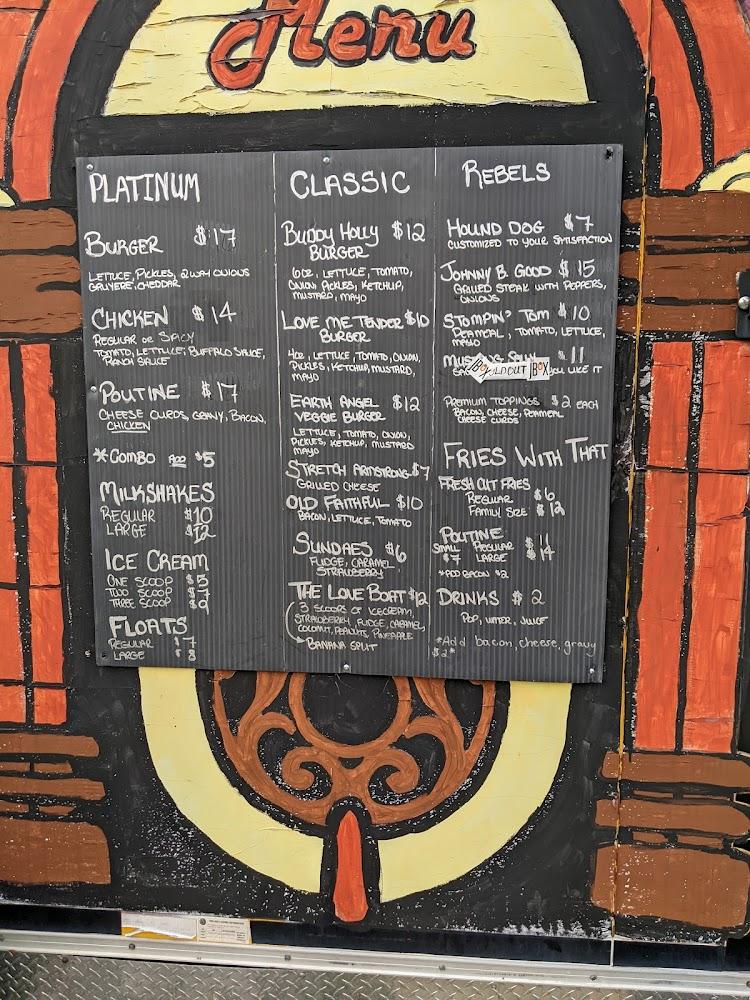 Menu
PLATINUM
BURGER $17
LETTUCE, PICKLES, 2 WAY ONIONS
GRUYERE, CHEDDAR
CHICKEN $14
REGULAR OR SPICY
TOMATO, LETTUCE, BUFFALO SAUCE,
RANCH SAUCE
POUTINE $17
CHEESE CURDS, GRAVY, BACON,
CHICKEN
*COMBO ADD $5
MILKSHAKES
REGULAR $10
LARGE $12
ICE CREAM
ONE SCOOP $5
TWO SCOOP $7
THREE SCOOP $9
FLOATS
REGULAR $7
LARGE $8
CLASSIC
BUDDY HOLLY $12
BURGER
6OZ, LETTUCE, TOMATO,
ONION PICKLES, KETCHUP,
MUSTARD, MAYO
LOVE ME TENDER $10
BURGER
4OZ, LETTUCE, TOMATO, ONION,
PICKLES, KETCHUP, MUSTARD,
MAYO
EARTH ANGEL $12
VEGGIE BURGER
LETTUCE, TOMATO, ONION,
PICKLES, KETCHUP, MUSTARD
MAYO
STRETCH ARMSTRONG $7
GRILLED CHEESE
OLD FAITHFUL $10
BACON, LETTUCE, TOMATO
SUNDAES $6
FUDGE, CARAMEL
STRAWBERRY
THE LOVE BOAT $12
3 SCOOPS OF ICECREAM,
STRAWBERRY, FUDGE, CARAMEL,
COCONUT, PEANUTS, PINEAPPLE
BANANA SPLIT
REBELS
HOUND DOG $7
CUSTOMIZED TO YOUR SATISFACTION
JOHNNY B. GOOD $15
GRILLED STEAK WITH PEPPERS,
ONIONS
STOMPIN' TOM $10
PEAMEAL, TOMATO, LETTUCE,
MAYO
$11
OLD OUT JBOX
YOU LIKE IT
PREMIUM TOPPINGS $2 EACH
BACON, CHEESE, PEAMEAL
CHEESE CURDS
FRIES WITH THAT
FRESH CUT FRIES
REGULAR $6
FAMILY SIZE $12
POUTINE
SMALL REGULAR $11
$7 LARGE $14
*ADD BACON $2
DRINKS $2
POP, WATER, JUICE
*Add bacon, cheese, gravy
$2*